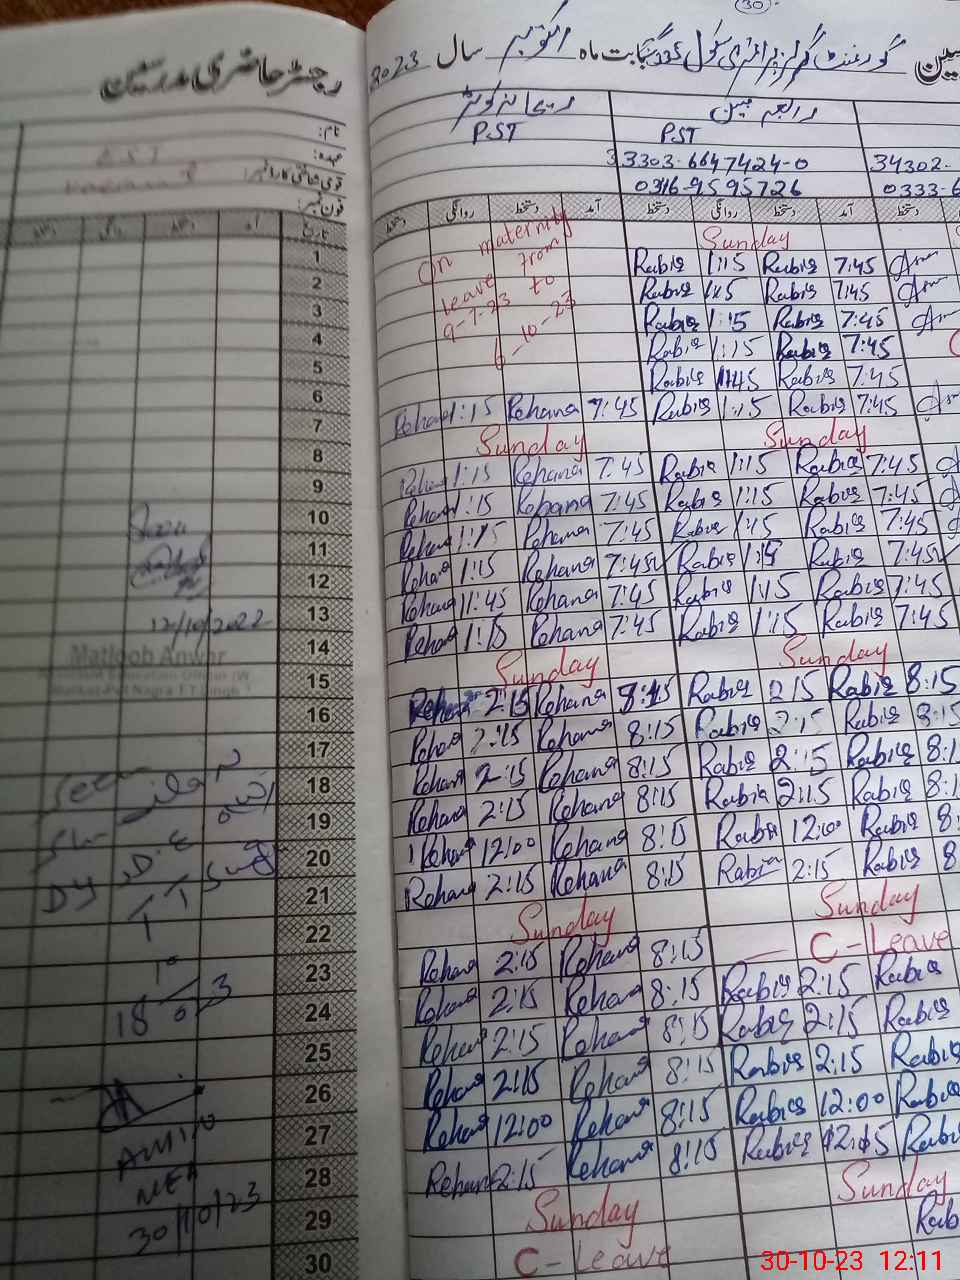 30
رجسٹر حاضری مدرسین
گورنمنٹ گرلز پرائمری سکول 335 گ ب بابت ماہ اکتوبر سال 2023
ریحانہ کوثر
PST
PST
33303-6647424-0
34302-
0316-9595726
0333-6
نام:
عہدہ:
قومی شناختی کارڈ نمبر:
فون نمبر:
دستخط روانگی دستخط آمد تاریخ
دستخط روانگی دستخط آمد دستخط روانگی دستخط آمد دستخط
On maternity
leave from
9-7-23 to
6-10-23
1 Sunday
2 Rabia 1:15 Rabia 7:45
3 Rabia 1:15 Rabia 7:45
4 Rabia 1:15 Rabia 7:45
5 Rabia 1:15 Rabia 7:45
6 Rabia Rabia 7:45
7 Rehana 1:15 Rehana 7:45 Rabia 1:15 Rabia 7:45
8 Sunday Sunday
9 Rehana 1:15 Rehana 7:45 Rabia 1:15 Rabia 7:45
10 Rehana 1:15 Rehana 7:45 Rabia 1:15 Rabia 7:45
11 Rehana 1:15 Rehana 7:45 Rabia 1:15 Rabia 7:45
12 Rehana 1:15 Rehana 7:45 Rabia 1:15 Rabia 7:45
13 Rehana 11:45 Rehana 7:45 Rabia 1:15 Rabia 7:45
14 Rehana 1:15 Rehana 7:45 Rabia 1:15 Rabia 7:45
15 Sunday Sunday
16 Rehana 2:15 Rehana 8:15 Rabia 2:15 Rabia 8:15
17 Rehana 2:15 Rehana 8:15 Rabia 2:15 Rabia 8:15
18 Rehana 2:15 Rehana 8:15 Rabia 2:15 Rabia 8:1
19 Rehana 2:15 Rehana 8:15 Rabia 2:15 Rabia 8:1
20 Rehana 12:00 Rehana 8:15 Rabia 12:00 Rabia 8:
21 Rehana 2:15 Rehana 8:15 Rabia 2:15 Rabia 8
22 Sunday Sunday
23 Rehana 2:15 Rehana 8:15 C-Leave
24 Rehana 2:15 Rehana 8:15 Rabia 2:15 Rabia
25 Rehana 2:15 Rehana 8:15 Rabia 2:15 Rabia
26 Rehana 2:15 Rehana 8:15 Rabia 2:15 Rabia
27 Rehana 12:00 Rehana 8:15 Rabia 12:00 Rabia
28 Rehana 2:15 Rehana 8:15 Rabia Rabi
29 Sunday Sunday
30 C-Leave Rab
12/10/2022
Matlooh Anwar
Seen
18
AMIN
MEA
30/10/23
30-10-23 12:11